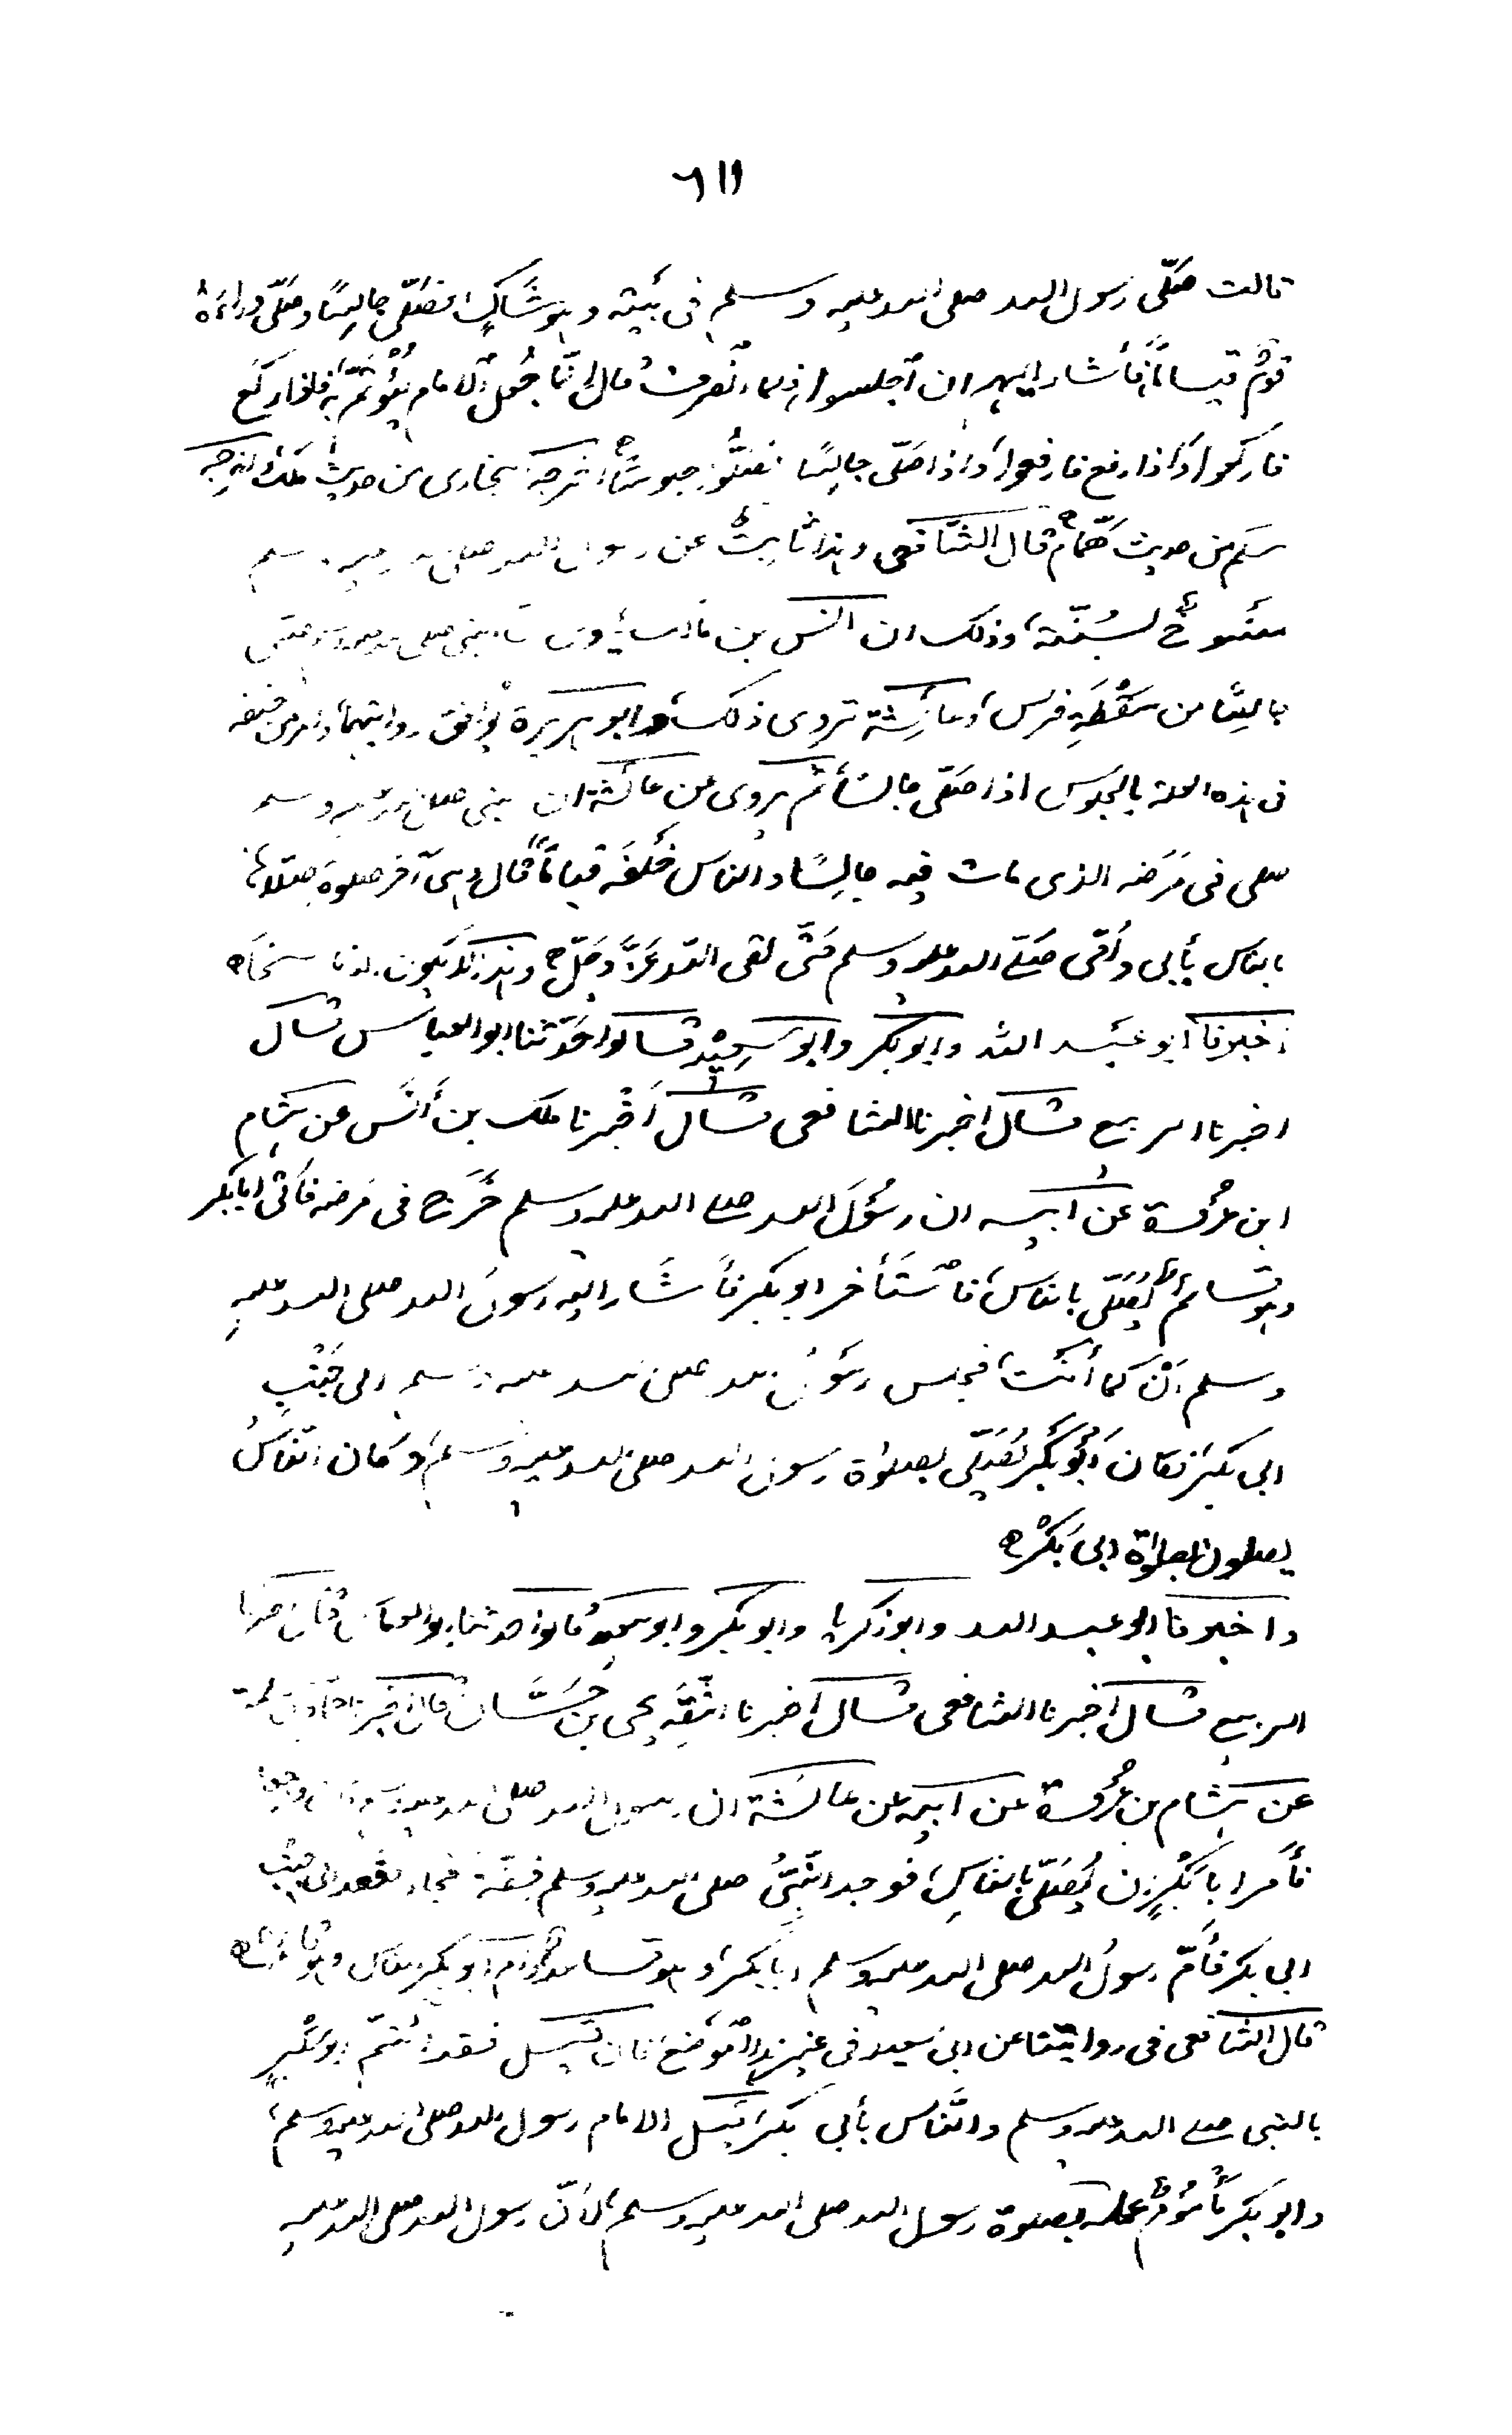 ٦١١
قالت صَلّى رسول الله صلى الله عليه وسلم فى بَيته وهو شَاكٍ فصَلّى جالِسًا وصَلّى وراءَهُ
قَوْمٌ قيامًا فأشار اليهم ان اجلسوا فلما انْصرفَ قال انّما جُعل الامام ليُؤتَمَّ به فاذا ركَع
فاركعوا واذا رفع فارفعوا واذا صَلّى جالِسًا فصَلُّوا جلوسًا اخرجه البخارى من حديث ملك واخرجه
مسلم من حديث هشام قال الشَّافعى وهذا ثابِتٌ عن رسول الله صلى الله عليه وسلم
منسوخٌ بسُنّته وذلك ان انس بن مالك روى ان النبى صلى الله عليه وسلم صلى
جالِسًا من سَقْطَةِ فرس وعائِشة تروى ذلك وابو هريرة يُوافق روايتهما وامر من خلفه
فى هذه العلة بالجلوس اذا صَلّى جالسًا ثم تروى عن عائشة ان النبى صلى الله عليه وسلم
صلى فى مَرَضه الذى مات فيه جالِسًا والناس خَلفَه قيامًا قال وهى آخر صلوة صلّاها
بالناس بأبى وأمّى صَلّى الله عليه وسلم حَتّى لقى الله عَزَّ وجَلّ وهذا لا يكون الا ناسخًا
اخبرنا ابو عَبد الله وابو بكر وابو سعِيْد قالوا حَدّثنا ابو العباس قال
اخبرنا الربيع قال اخبرنا الشافعى قال أخْبرنا ملك بن أنَس عن هِشام
ابن عُروة عن ابيه ان رسُولَ الله صلى الله عليه وسلم خَرَج فى مَرضه فأتى ابا بكر
وهو قائم يُصَلّى بالناس فاسْتَأخر ابو بكر فأشَار اليه رسولَ الله صلى الله عليه
وسلم اَنْ كما أَنْتَ فجلس رسُولُ الله صلى الله عليه وسلم الى جَنْبِ
ابى بكر فكان اَبُو بَكْر يُصَلّى بصلوٰة رسول الله صلى الله عليه وسلم وكان النّاسُ
يصلون بصلوٰة ابى بَكْرٍ
واخبرنا ابو عبد الله وابو زكريا وابو بكر وابو سعيد قالوا حدثنا ابو العباس قال اخبرنا
الربيع قال اخبرنا الشافعى قال اخبرنا الثّقَة يحى بن حَسَّان قال اخبرنا حماد بن سلمة
عن هِشام بن عُروة عن ابيه عن عائشة ان رسول الله صلى الله عليه وسلم كان وجعا
فأمر ابا بَكْرٍ ان يُصَلّى بالناسِ فوجد النّبِىُّ صلى الله عليه وسلم خِفّة فجاء فقعد الى جنْب
ابى بكر فأمّ رسولُ الله صلى الله عليه وسلم ابا بكر وهو قاعد وأم ابو بكر الناس وهو قائم
قال الشافعى فى روايتنا عن ابى سعيد فى غير هذا المَوْضع فان قيل فقد ائتَمّ ابو بَكْرٍ
بالنبى صلى الله عليه وسلم والنّاس بأبى بكر قيل الامام رسول الله صلى الله عليه وسلم
وابو بكر مأمُوْم علم بصلوة رسول الله صلى الله عليه وسلم لاَنّ رسول الله صلى الله عليه